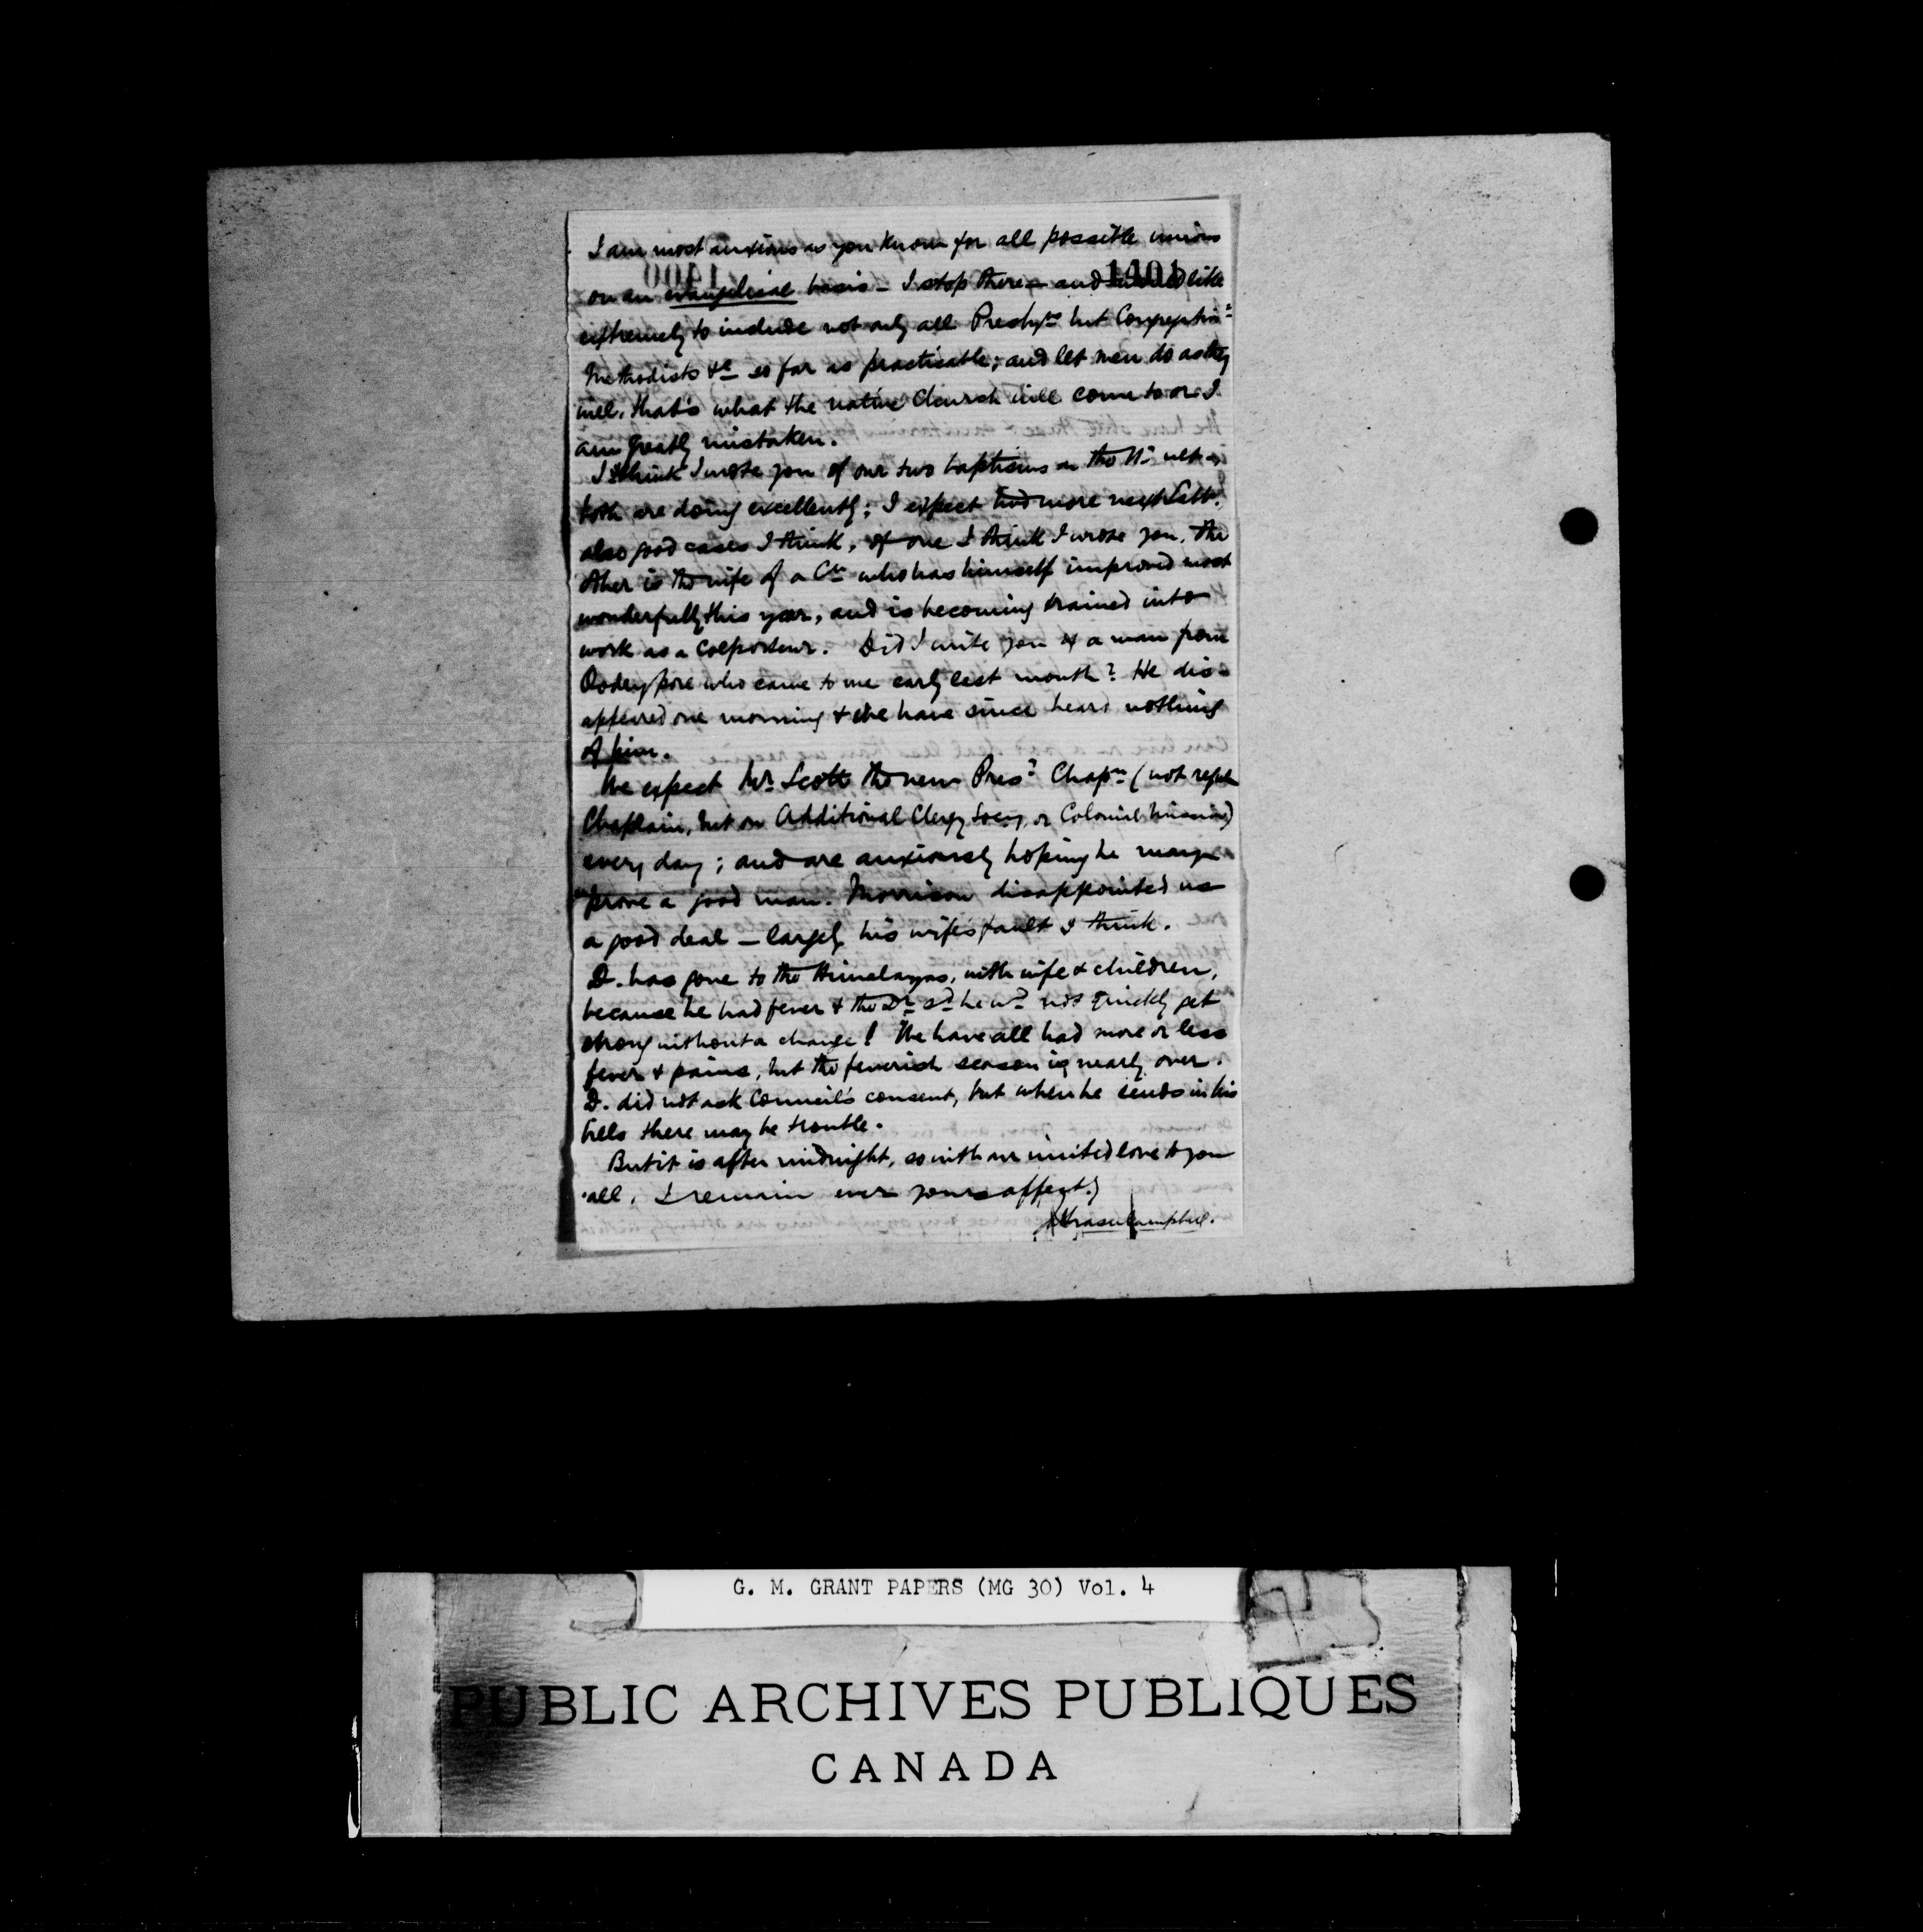 I am most anxious as you know for all possible union
1401
on an evangelical basis - I stop there - and would like
extremely to include not only all Presbyns but Congregation:s
Methodists &c so far as practicable; and let men do as they
will. that's what the native Church will come to or I
am greatly mistaken.
I think I wrote you of our two baptisms on the ult -
both are doing excellently; I expect two more next Sabb.
also good cases I think, of one I think I wrote you. The
other is the wife of a Cn who has himself improved most
wonderfully this year, and is becoming trained into
work as a Colporteur. Did I write you of a man from
Oodeypore who came to me early last month? He dis-
appeared one morning & we have since heard nothing
of him.
We expect Mr Scott the new Presn Chapn (not regular
Chaplain, but on Additional Clergy Socy, or Colonial Mission)
every day; and are anxiously hoping he may
prove a good man. Morrison disappointed us
a good deal - largely his wife's fault I think.
D. has gone to the Himalayas, with wife & children,
because he had fever & the Dr sd he wd not quickly get
strong without a change! We have all had more or less
fever & pains, but the feverish season is nearly over.
D. did not ask Council's consent, but when he sends in his
bills there may be trouble.
But it is after midnight, so with our united love to you
all, I remain ever yours affect.y
Fraser Campbell.
G. M. GRANT PAPERS (MG 30) Vol. 4
PUBLIC ARCHIVES PUBLIQUES
CANADA